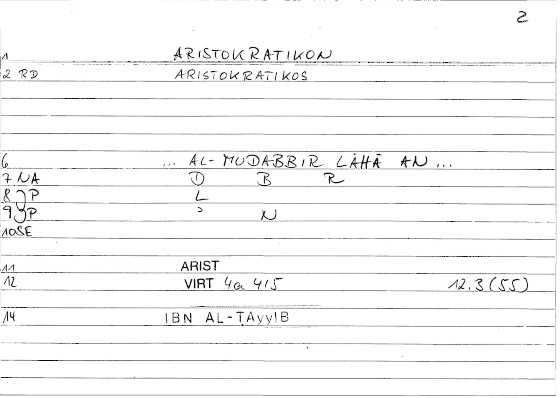 2
1 ARISTOKRATIKON
2 RD ARISTOKRATIKOS
6 ... AL-MUDABBIR LÀHĀ AN ...
7 NA D B R
8 )P L
9 )P ʾ N
10SE
11 ARIST
12 VIRT 4a 4/5 12.3 (55)
14 IBN AL-ṬAyyIB